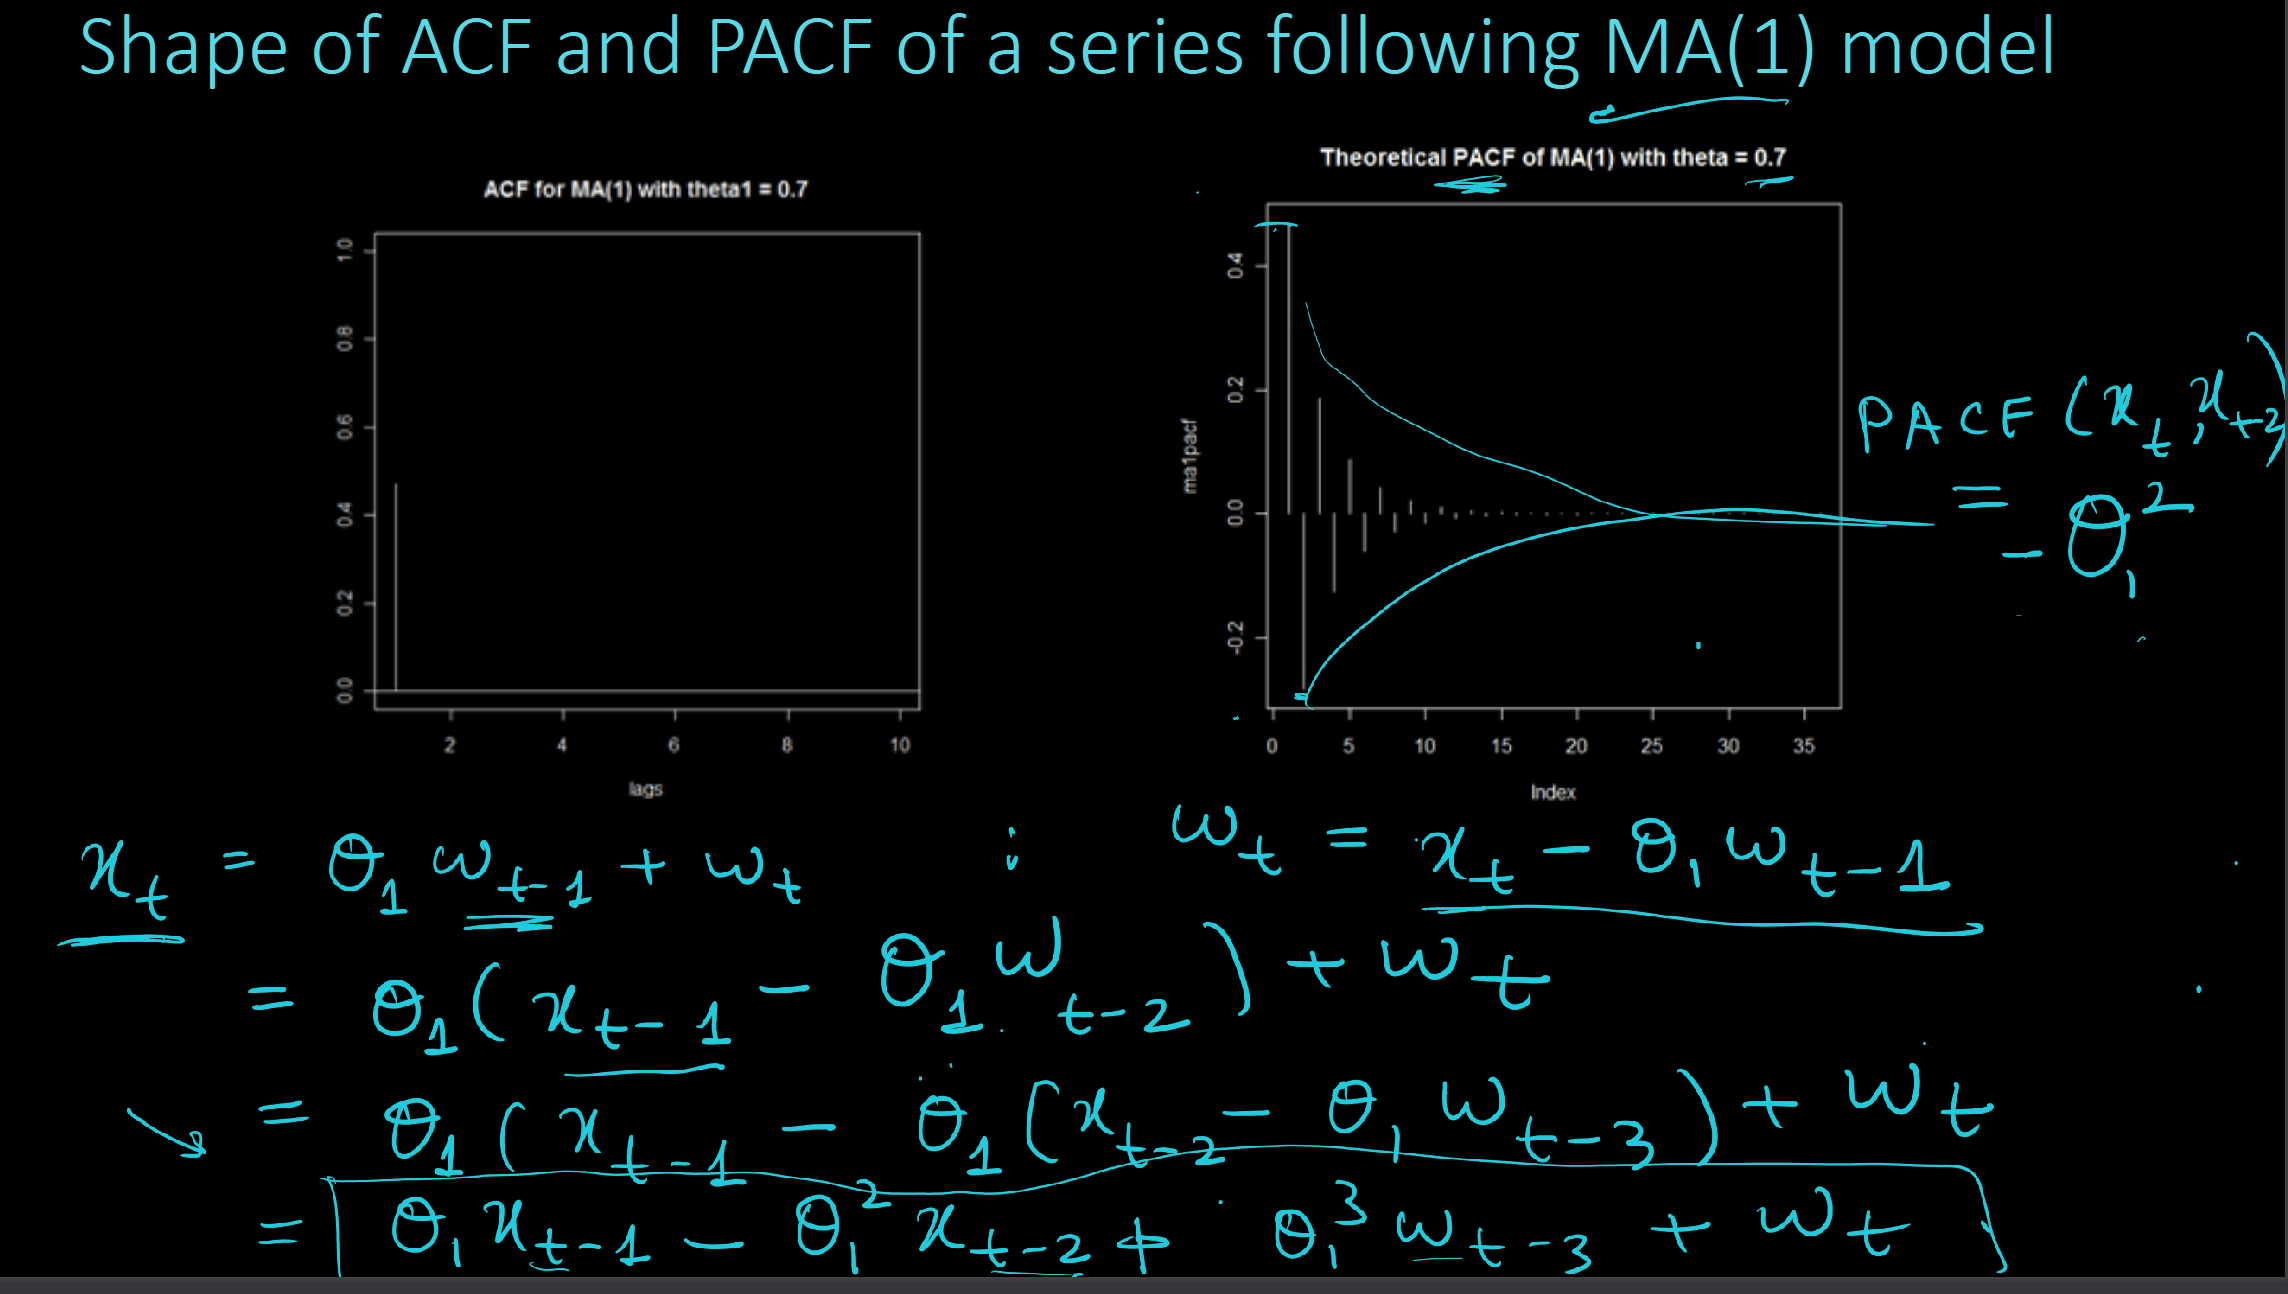 Shape of ACF and PACF of a series following MA(1) model
ACF for MA(1) with theta1 = 0.7
1.0
0.8
0.6
0.4
0.2
0.0
2 4 6 8 10
lags
Theoretical PACF of MA(1) with theta = 0.7
0.4
0.2
0.0
-0.2
ma1pacf
0 5 10 15 20 25 30 35
Index
PACF (x_t, x_{t-2})
=
- θ₁²
x_t = θ₁ w_{t-1} + w_t ; w_t = x_t - θ₁ w_{t-1}
= θ₁ (x_{t-1} - θ₁ w_{t-2}) + w_t
= θ₁ (x_{t-1} - θ₁ (x_{t-2} - θ₁ w_{t-3}) + w_t
= θ₁ x_{t-1} - θ₁² x_{t-2} + θ₁³ w_{t-3} + w_t